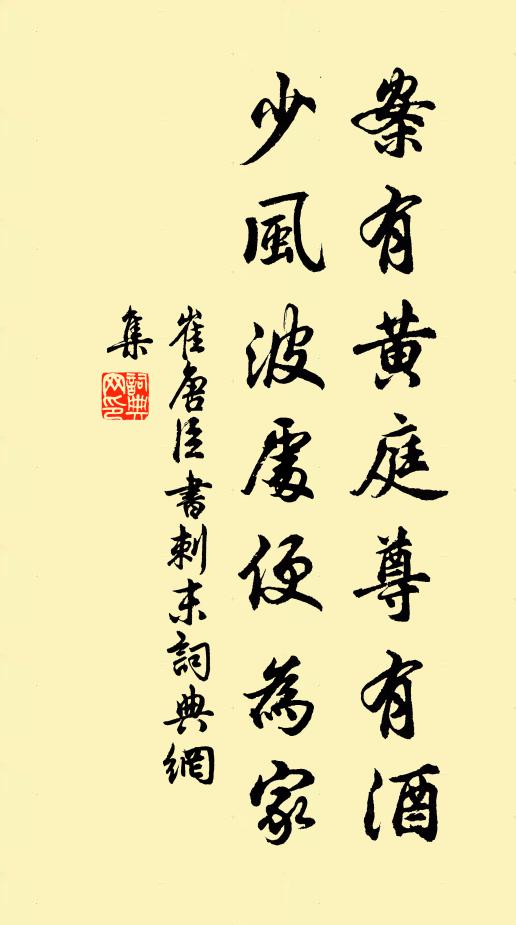 案有黃庭尊有酒
少風波處便為家
崔唐臣書刺末詞典網
集
詞典
网印